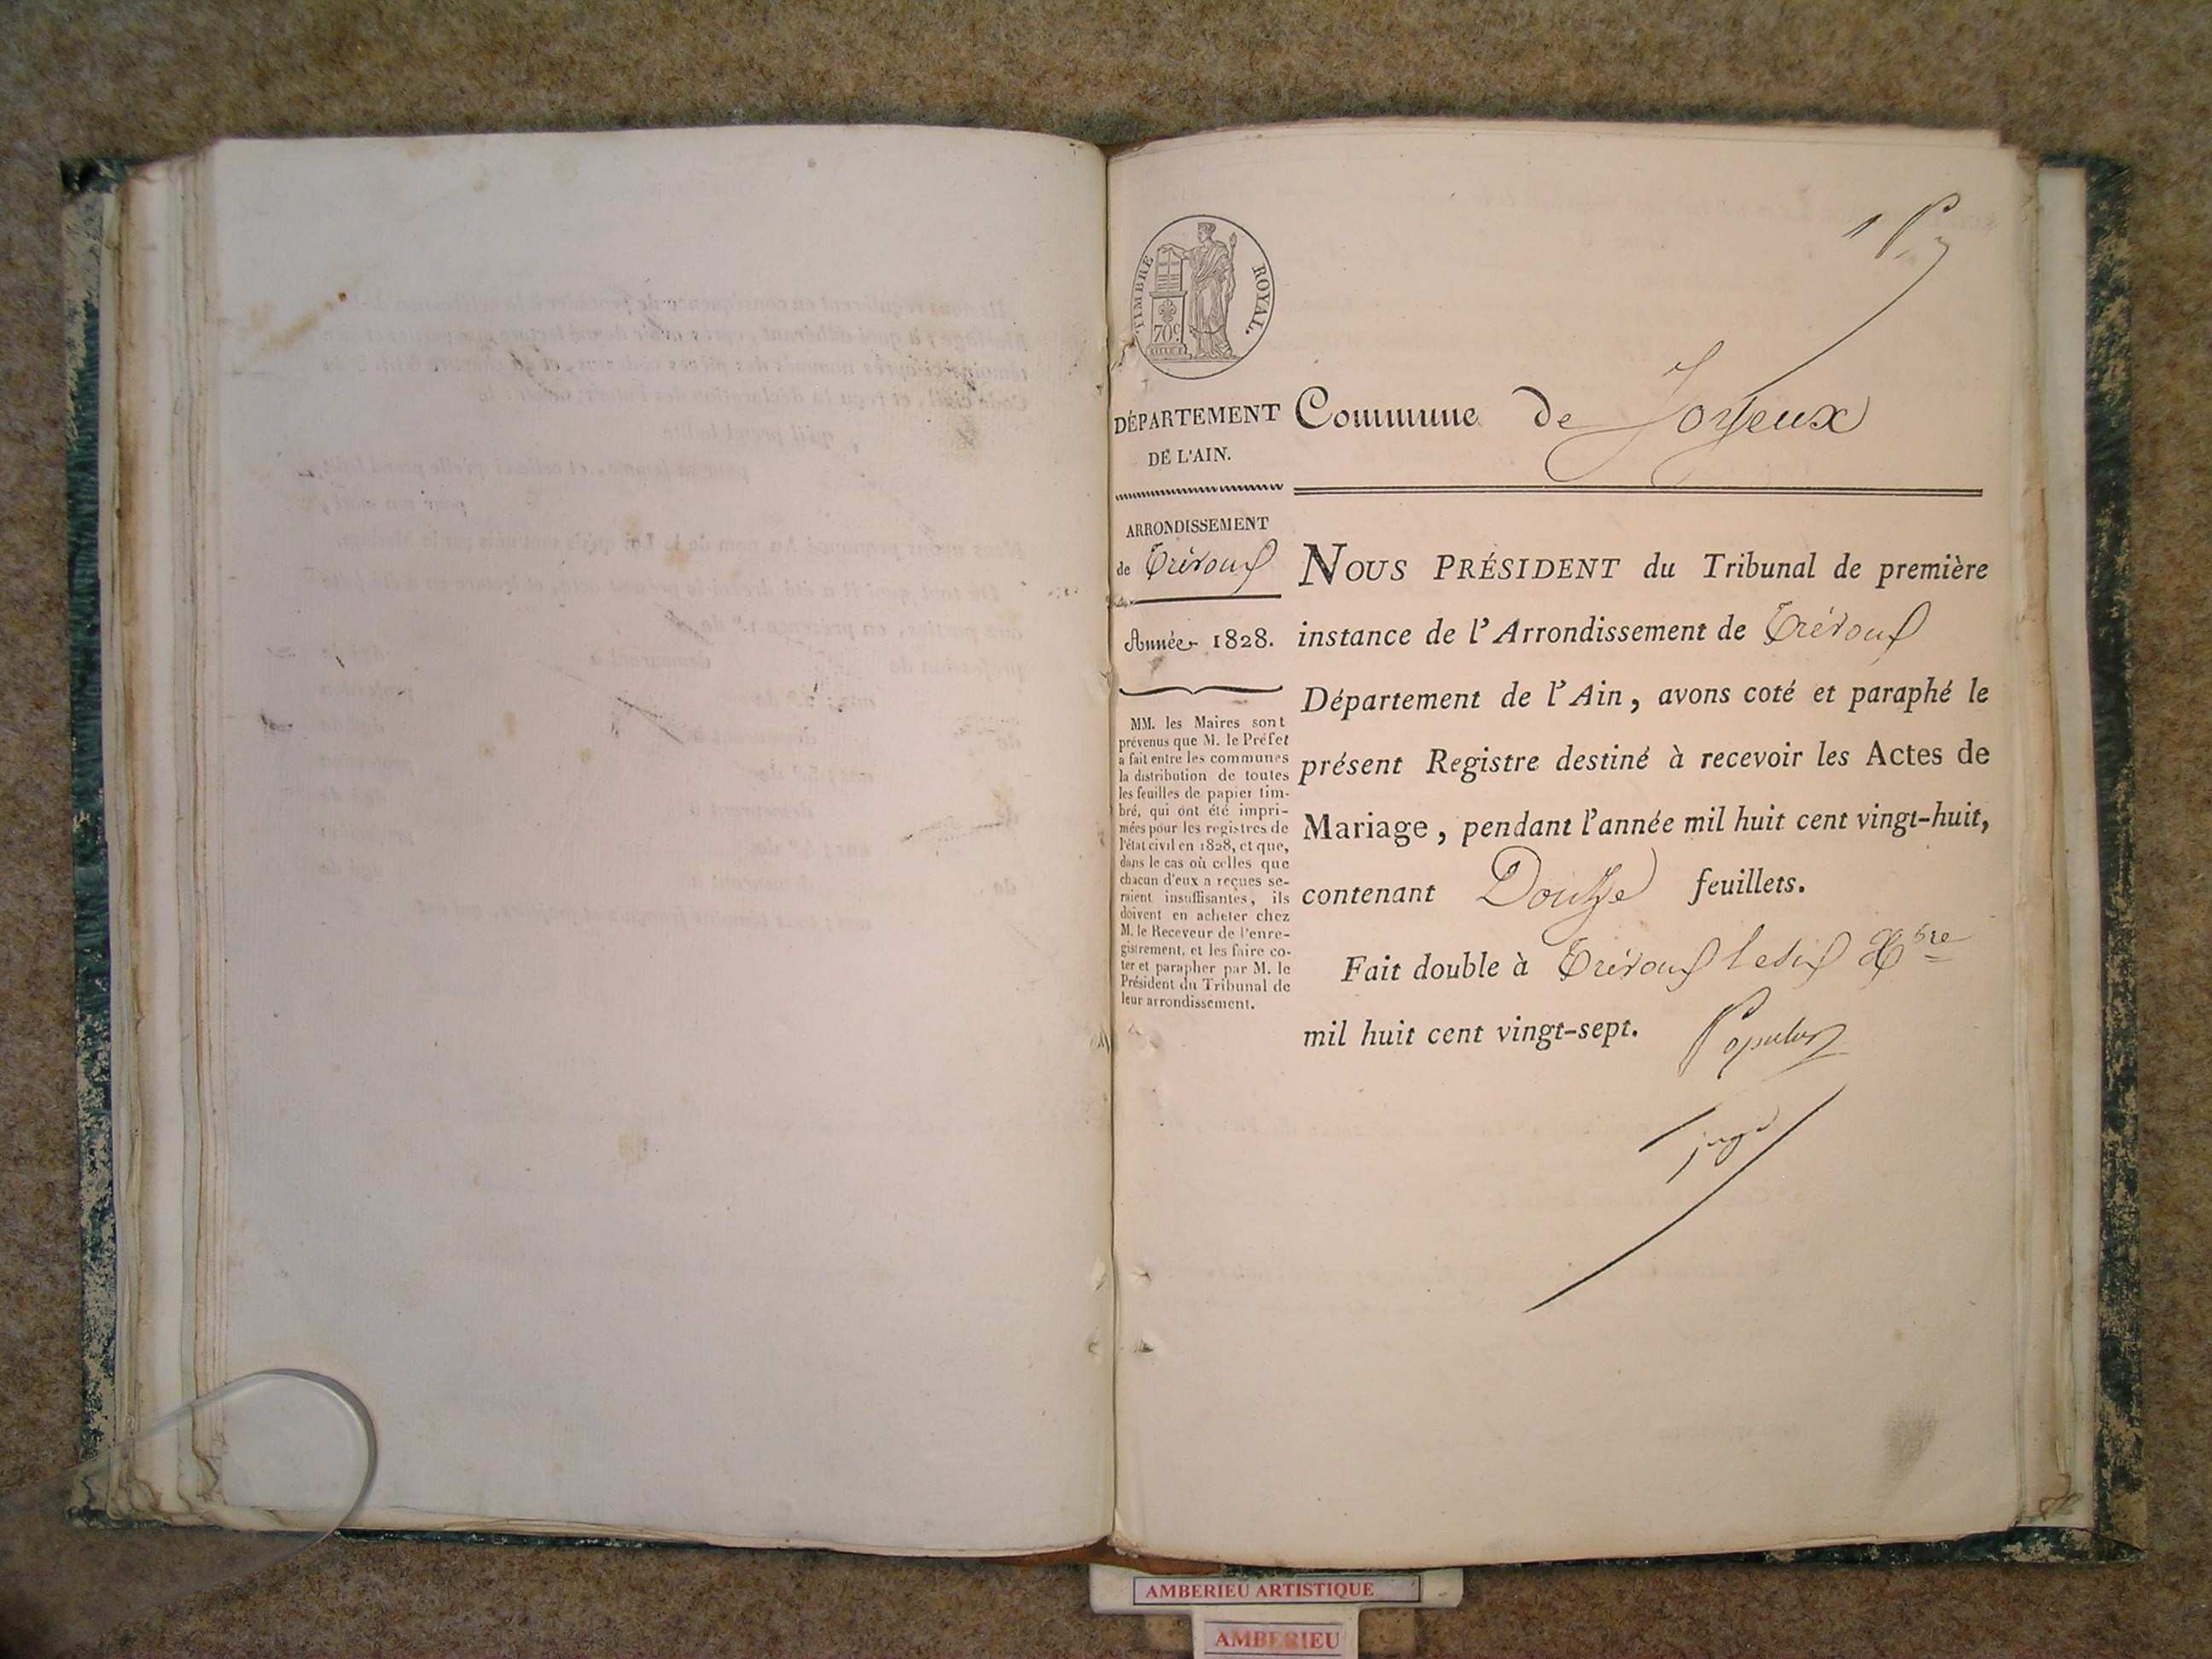 1
TIMBRE ROYAL.
70c
DÉPARTEMENT
DE L'AIN.
Commune de Joyeux
ARRONDISSEMENT
de Trévoux
Année 1828.
MM. les Maires sont
prévenus que M. le Préfet
a fait entre les communes
la distribution de toutes
les feuilles de papier tim-
bré, qui ont été impri-
mées pour les registres de
l'état civil en 1828, et que,
dans le cas où celles que
chacun d'eux a reçues se-
raient insuffisantes, ils
doivent en acheter chez
M. le Receveur de l'enre-
gistrement, et les faire co-
ter et parapher par M. le
Président du Tribunal de
leur arrondissement.
NOUS PRÉSIDENT du Tribunal de première
instance de l'Arrondissement de Trévoux
Département de l'Ain, avons coté et paraphé le
présent Registre destiné à recevoir les Actes de
Mariage, pendant l'année mil huit cent vingt-huit,
contenant Douze feuillets.
Fait double à Trévoux le dix Xbre
mil huit cent vingt-sept. Populus
juge
AMBERIEU ARTISTIQUE
AMBERIEU